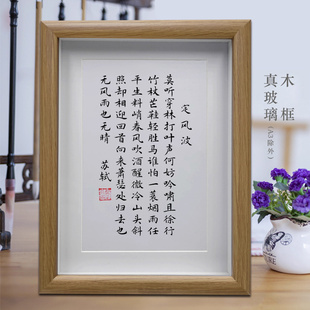 定风波
莫听穿林打叶声何妨吟啸且徐行
竹杖芒鞋轻胜马谁怕一蓑烟雨任
平生料峭春风吹酒醒微冷山头斜
照却相迎回首向来萧瑟处归去也
无风雨也无晴
苏轼
木框
真玻璃(A3除外)